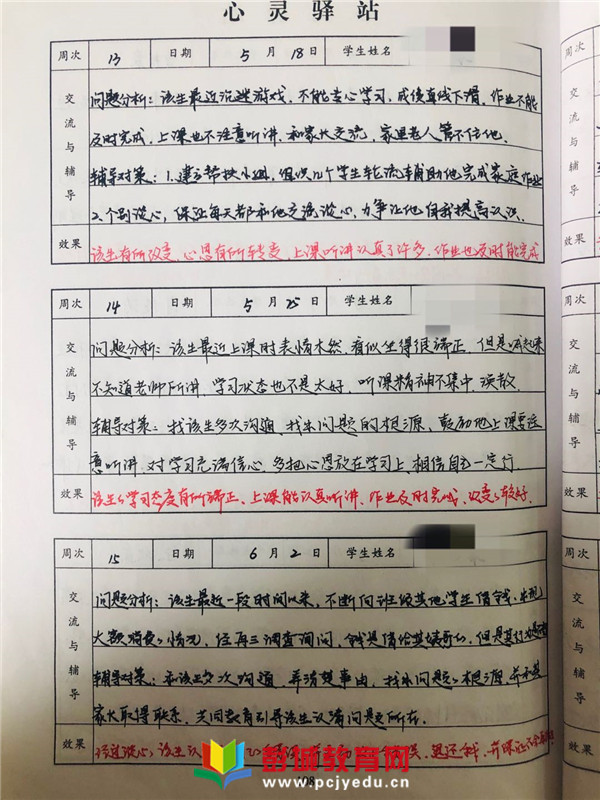 心灵驿站
周次 13 日期 5月18日 学生姓名
交流与辅导
问题分析：该生最近沉迷游戏，不能专心学习，成绩直线下滑，作业不能
及时完成，上课也不注意听讲，和家长交流，家里老人管不住他。
辅导对策：1.建立帮扶小组，组织几个学生轮流辅助他完成家庭作业
2.个别谈心，保证每天都和他交流谈心，力争让他自我提高认识。
效果 该生有所改变，心思有所转变，上课听讲认真了许多，作业也及时能完成
周次 14 日期 5月25日 学生姓名
交流与辅导
问题分析：该生最近上课时表情木然，看似坐得很端正，但是喊起来
不知道老师所讲，学习状态也不是太好，听课精神不集中，涣散
辅导对策：找该生多次沟通，找出问题的根源，鼓励他上课要注
意听讲，对学习充满信心，多把心思放在学习上，相信自己一定行
效果 该生的学习态度有所端正，上课能认真听讲，作业及时完成，改变较好。
周次 15 日期 6月2日 学生姓名
交流与辅导
问题分析：该生最近一段时间以来，不断向班级其他学生借钱，出现
大额消费的情况，经再三调查询问，钱是借给其
辅导对策：和该生多次沟通，弄清楚事由，找出问题的根源，并和其
家长取得联系，共同教育引导该生认清问题所在。
效果
郸城教育网
www.pcjyedu.cn
108
周
交